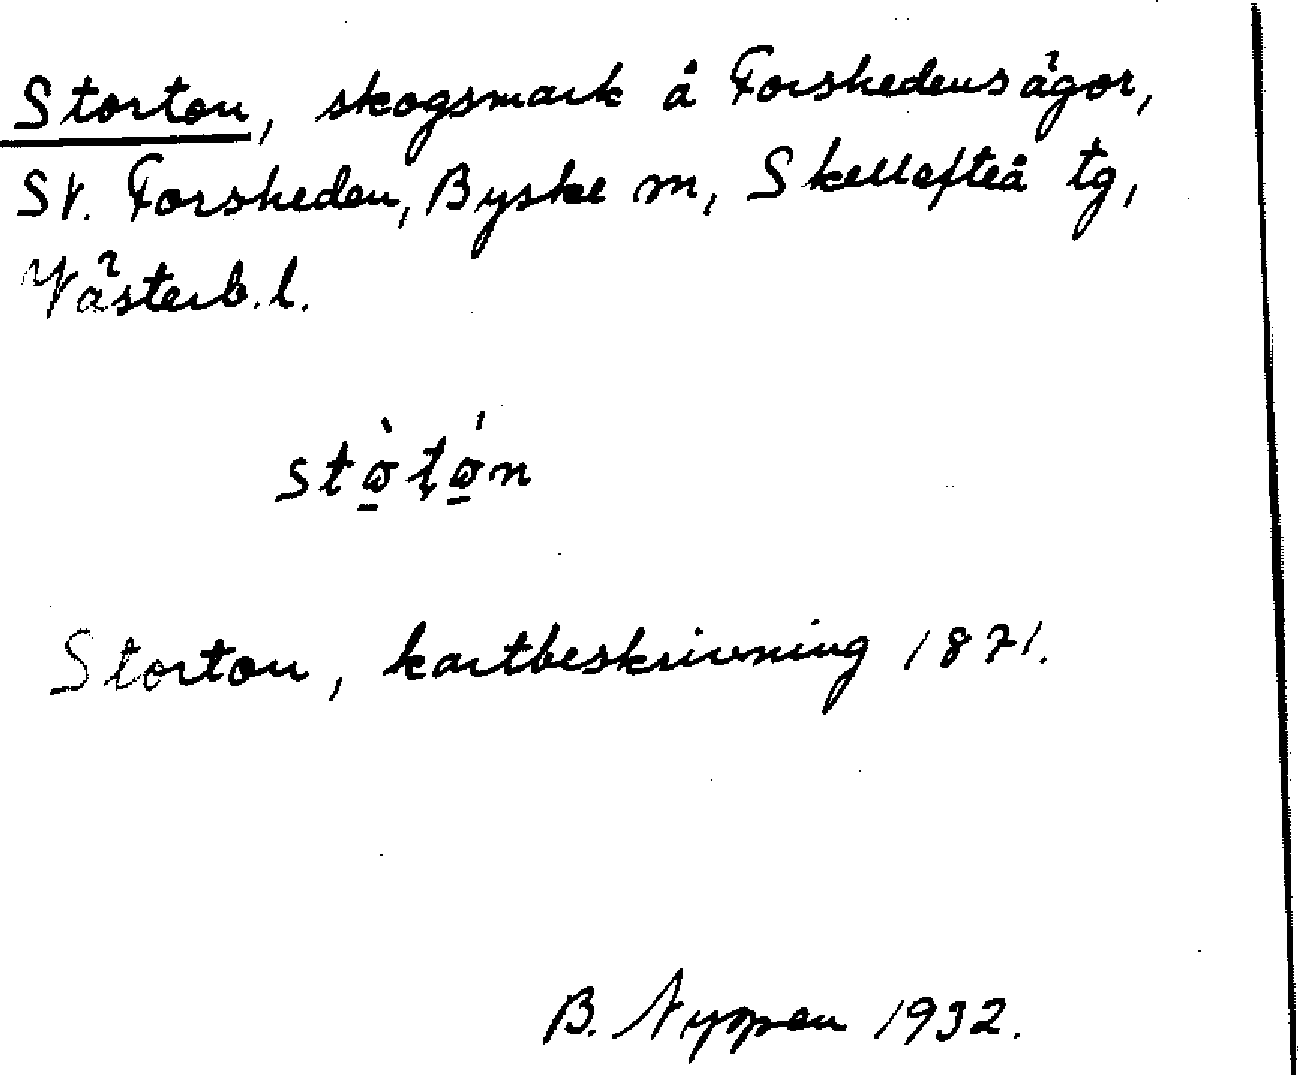 Storton, skogsmark å Forshedens ägor,
SV. Forsheden, Byske sn, Skellefteå tg,
Västerb. l.
Storton, kartbeskrivning 1871.
B. Nyman 1932.